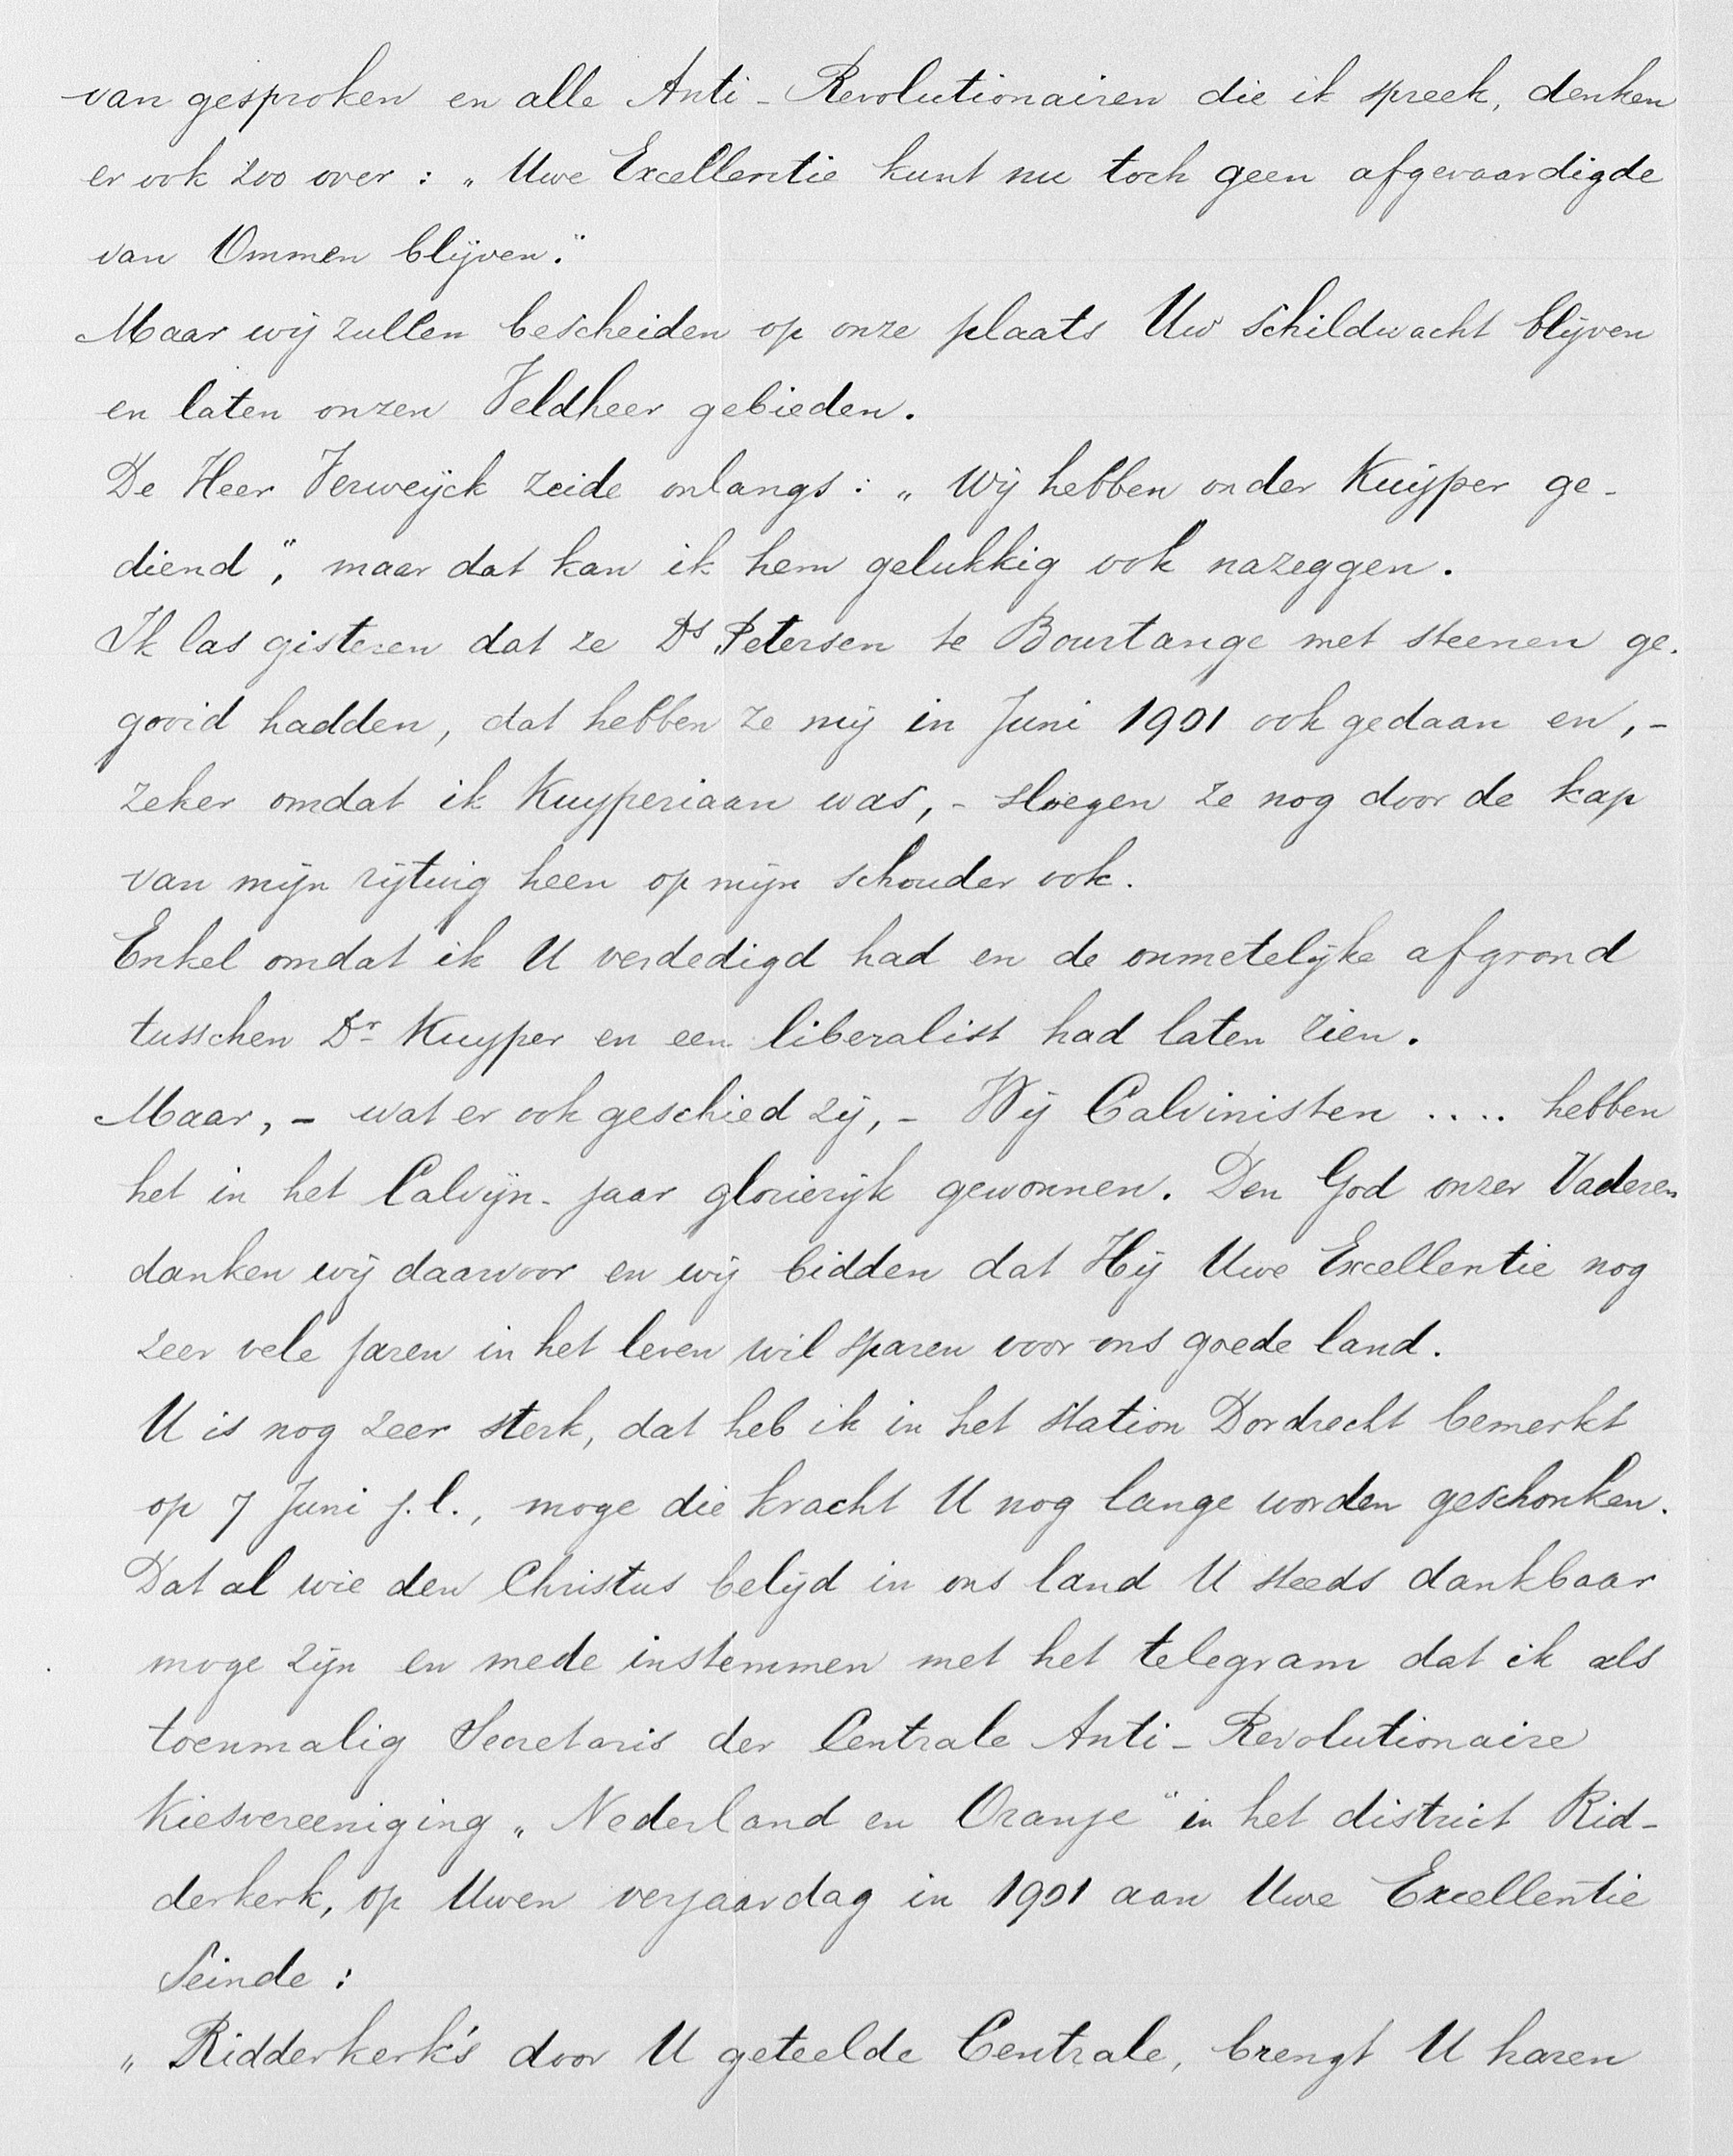 van gesproken en alle Anti-Revolutionairen die ik spreek, denken
er ook zoo over: „Uwe Excellentie kunt nu toch geen afgevaardigde
van Ommen blijven."
Maar wij zullen bescheiden op onze plaats Uw schildwacht blijven
en laten onzen Veldheer gebieden.
De Heer Verweijck zeide onlangs: „Wij hebben onder Kuijper ge-
diend", maar dat kan ik hem gelukkig ook nazeggen.
Ik las gisteren dat ze Ds Petersen te Bourtange met steenen ge-
gooid hadden, dat hebben ze mij in Juni 1901 ook gedaan en, -
zeker omdat ik Kuyperiaan was, - sloegen ze nog door de kap
van mijn rijtuig heen op mijn schouder ook.
Enkel omdat ik U verdedigd had en de onmetelijke afgrond
tusschen Dr Kuyper en een liberalist had laten zien.
Maar, - wat er ook geschied zij, - Wij Calvinisten .... hebben
het in het Calvijn-jaar glorierijk gewonnen. Den God onzer Vaderen
danken wij daarvoor en wij bidden dat Hij Uwe Excellentie nog
zeer vele jaren in het leven wil sparen voor ons goede land.
U is nog zeer sterk, dat heb ik in het station Dordrecht bemerkt
op 7 Juni j.l., moge die kracht U nog lange worden geschonken.
Dat al wie den Christus belijd in ons land U steeds dankbaar
moge zijn en mede instemmen met het telegram dat ik als
toenmalig Secretaris der Centrale Anti-Revolutionaire
Kiesvereeniging „Nederland en Oranje" in het district Rid-
derkerk, op Uwen verjaardag in 1901 aan Uwe Excellentie
Seinde:
„Ridderkerk's door U geteelde Centrale, brengt U haren